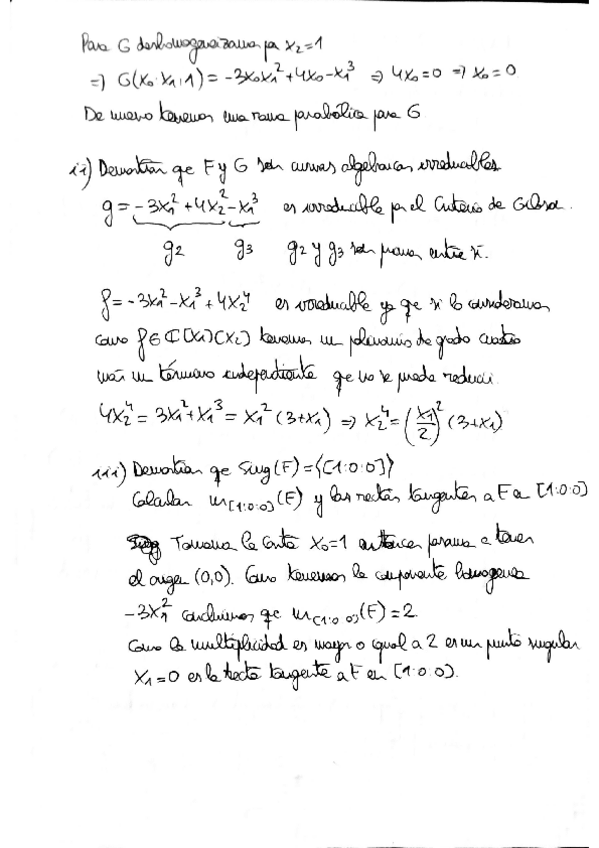 Para G deshomogeneizamos por x₂=1
⇒ G(x₀:x₁:1) = -3x₀x₁²+4x₀-x₁³ ⇒ 4x₀=0 ⇒ x₀=0
De nuevo tenemos una rama parabólica para G
ii) Demostrar que F y G son curvas algebraicas irreducibles
g = -3x₁²+4x₂²-x₁³ es irreducible por el Criterio de
g₂ g₃ g₂ y g₃ son primos entre sí.
f = -3x₁²-x₁³+4x₂⁴ es irreducible ya que si lo consideramos
como f∈ℂ[x₁][x₂] tenemos un polinomio de grado cuatro
más un término independiente que no se puede reducir.
4x₂⁴ = 3x₁²+x₁³ = x₁²(3+x₁) ⇒ x₂⁴ = (x₁/2)²(3+x₁)
iii) Demostrar que Sing(F) = {[1:0:0]}
Calcular m[1:0:0](F) y las rectas tangentes a F en [1:0:0]
Tomamos la carta x₀=1 entonces pasamos a tener
el origen (0,0). Como tenemos la componente homogenea
-3x₁² concluimos que m[1:0:0](F) = 2.
Como la multiplicidad es mayor o igual a 2 es un punto singular
x₁=0 es la recta tangente a F en [1:0:0].